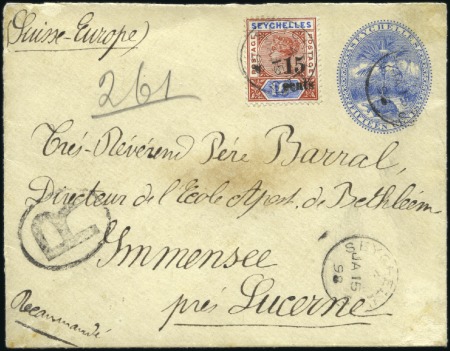 Suisse-Europe)
SEYCHELLES
POSTAGE
POSTAGE
15
cents
SEYCHELLES
FIFTEEN
261
Très-Révérend Père Barral,
Directeur de l'Ecole Apost. de Bethléem-
R
Immensee
SEYCHELLES
JA 15
98
près Lucerne
Recommandé